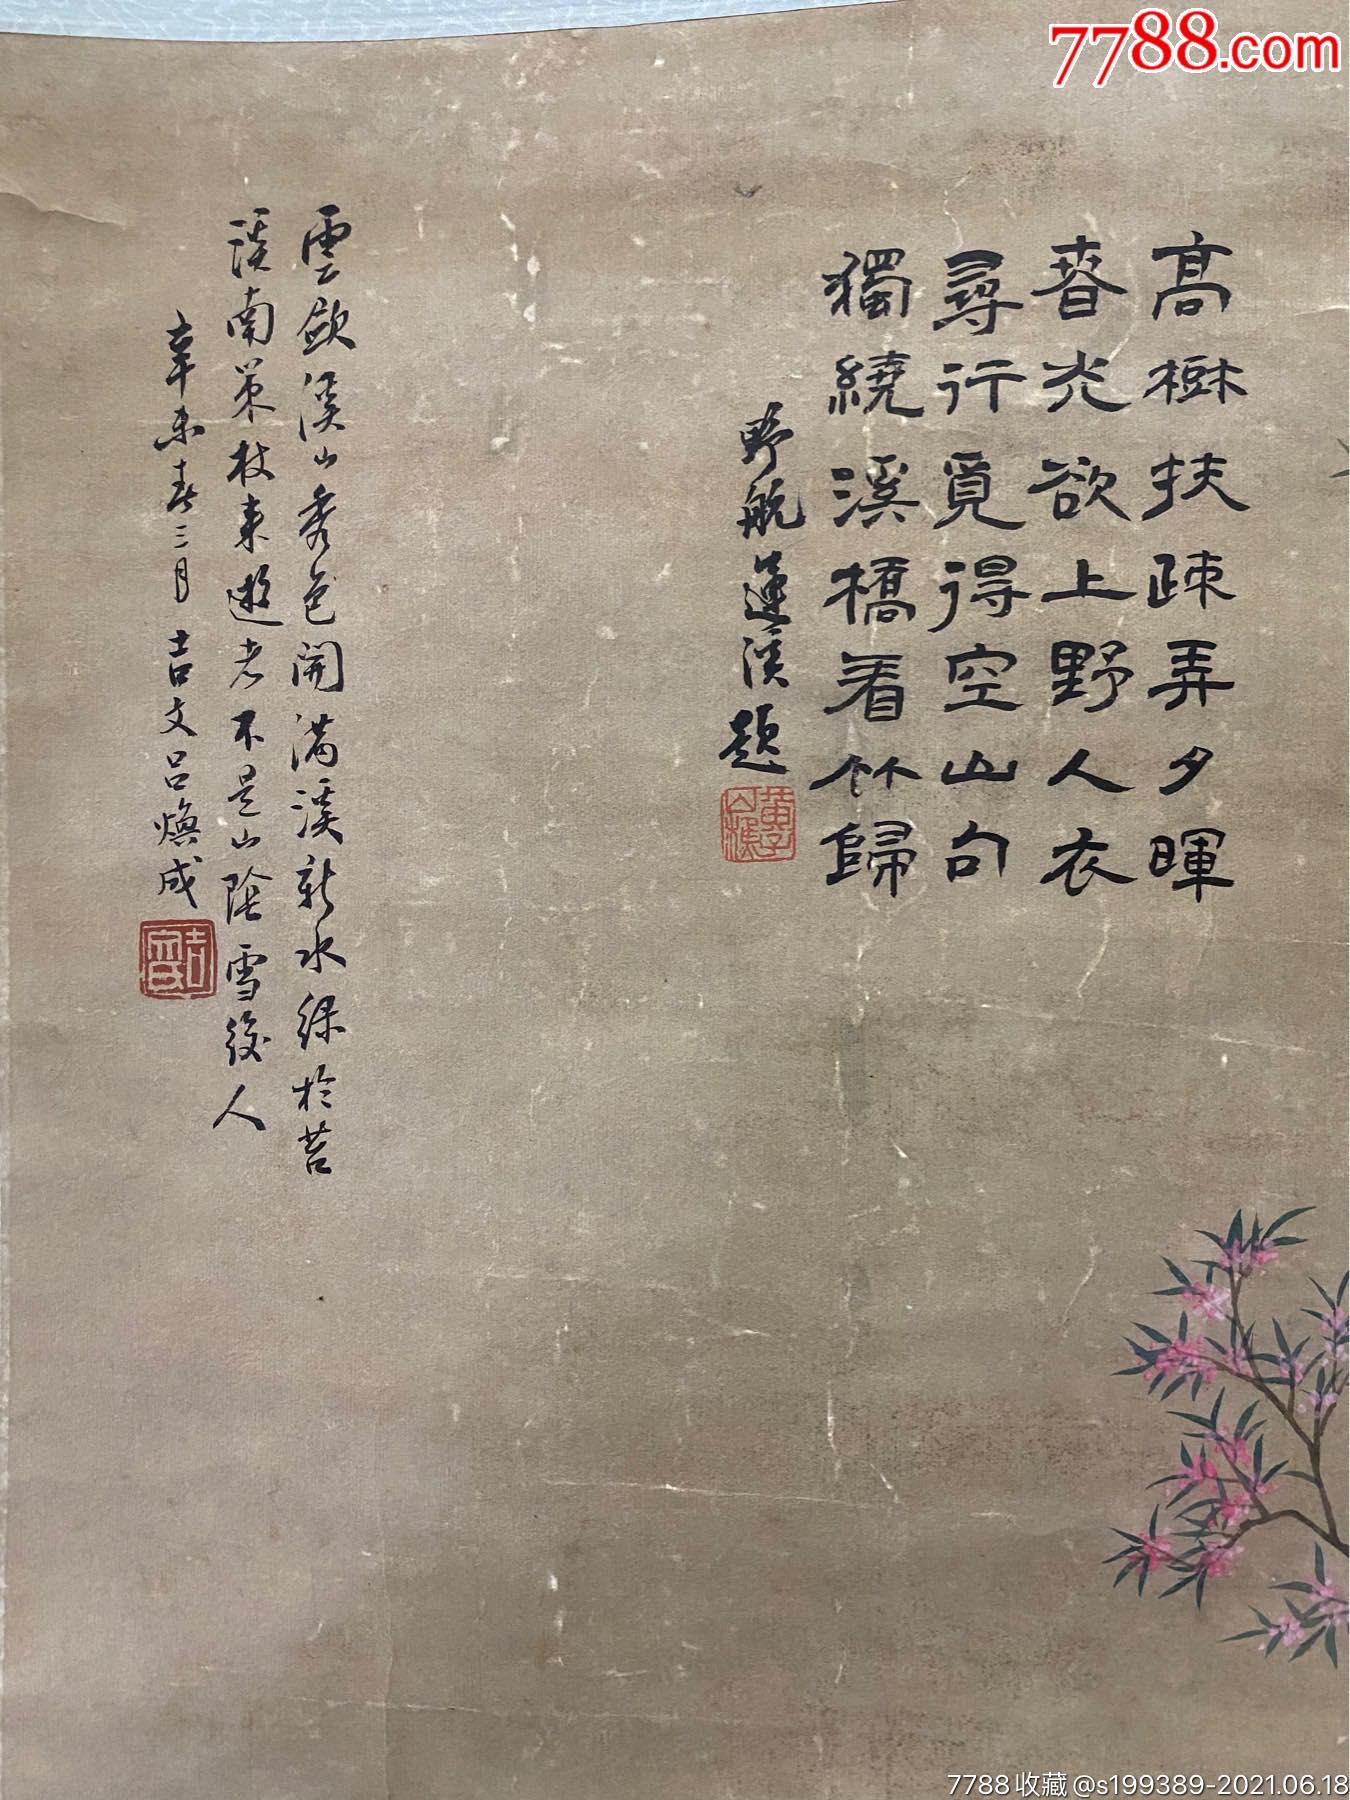 7788.com
高樹扶疎弄夕暉
春光欲上野人衣
尋行覓得空山句
獨繞溪橋看竹歸
野航蓮溪題
雲斂溪山秀色開滿溪新水綠於苔
溪南策杖東遊者不是山陰雪後人
辛未春三月 吉文呂煥成
7788收藏@s199389-2021.06.18